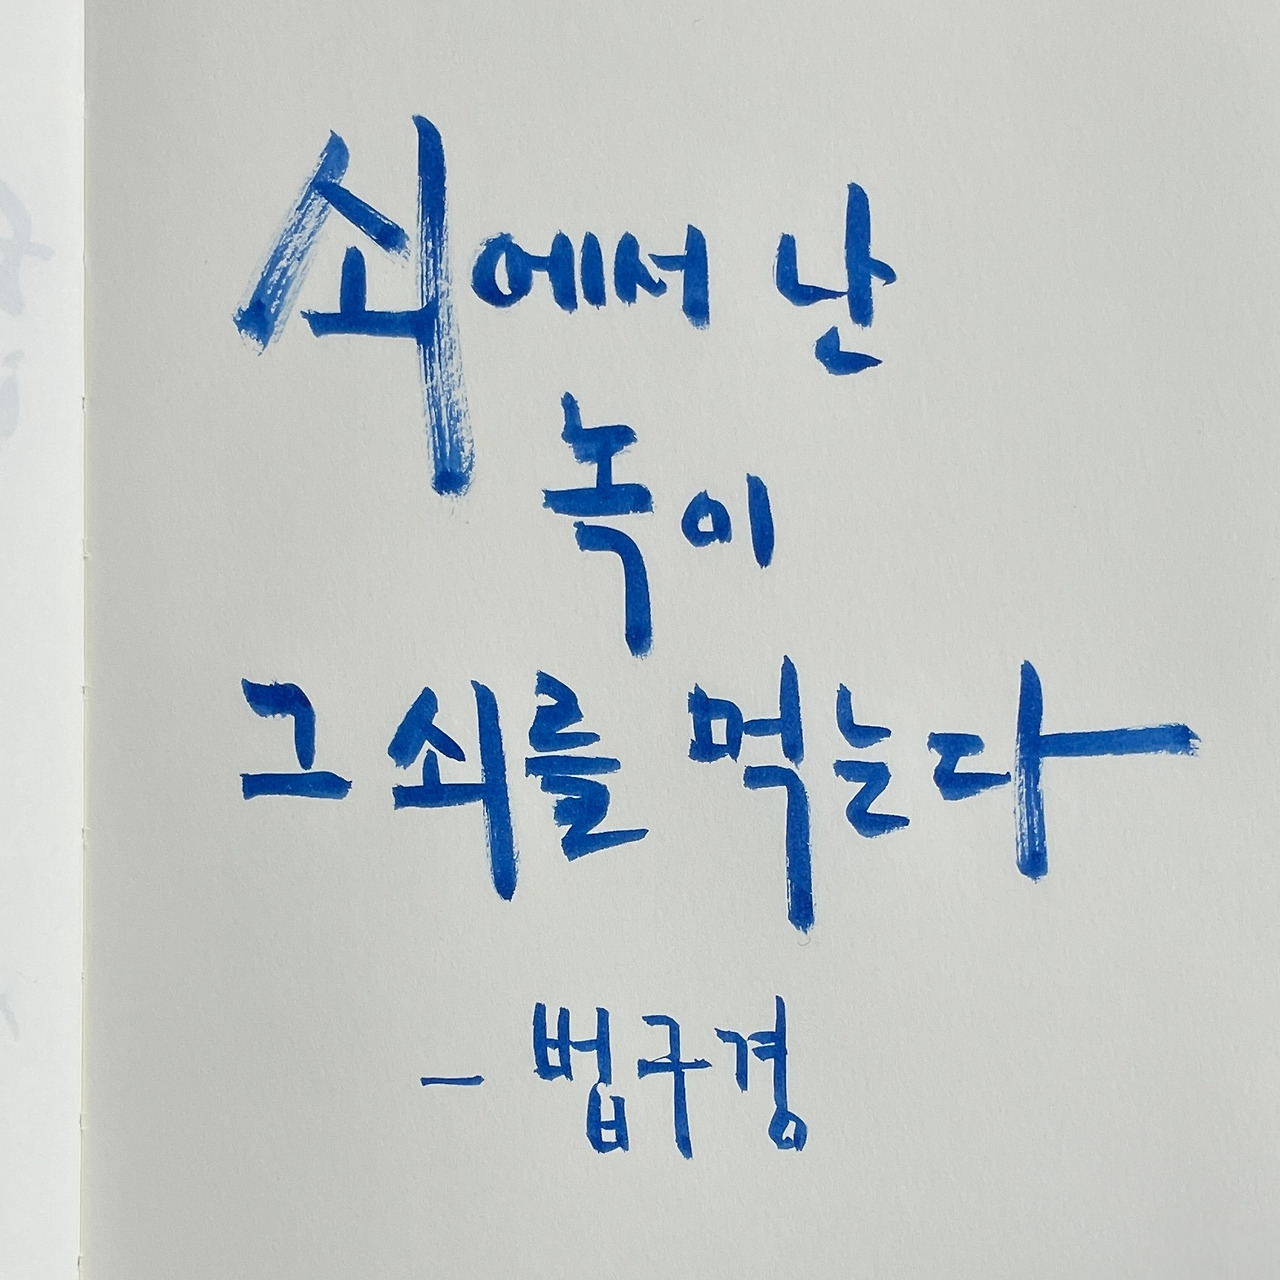 쇠에서 난
녹이
그 쇠를 먹는다
- 법구경